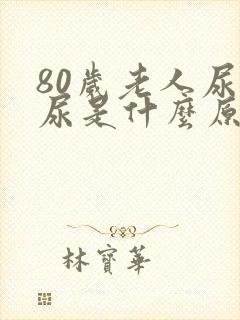 80歲老人尿
尿是什麼原
林寶華